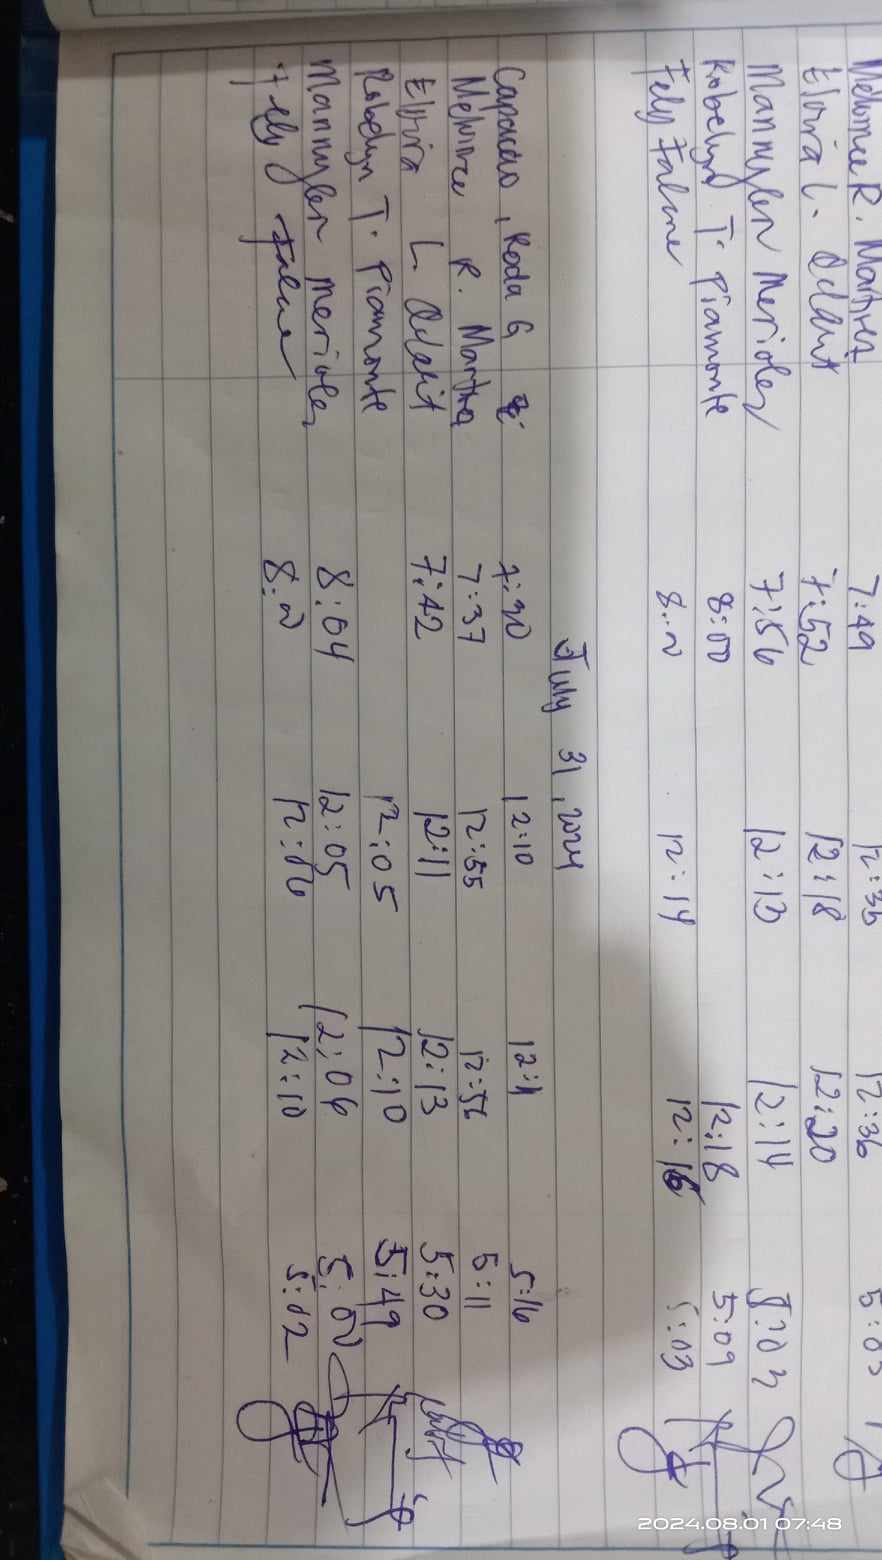 Melvince R. Martha 7:49 12:35 12:36
Elvira L. Odait 7:52 12:18 12:20
Mannylen Merioles 7:56 12:13 12:14
Robelyn T. Piamonte 8:00 12:18 5:09
Fely 12:14 12:16 5:03
July 31, 2024
Capacao, Roda G 7:30 12:10 12:11 5:16
Melvince R. Martha 7:37 12:55 12:56 5:11
Elvira L. Odait 7:42 12:11 12:13 5:30
Robelyn T. Piamonte 12:05 12:10 5:49
Mannylen Merioles 8:04 12:05 12:06
Fely 12:06 12:10 5:02
2024.08.01 07:48